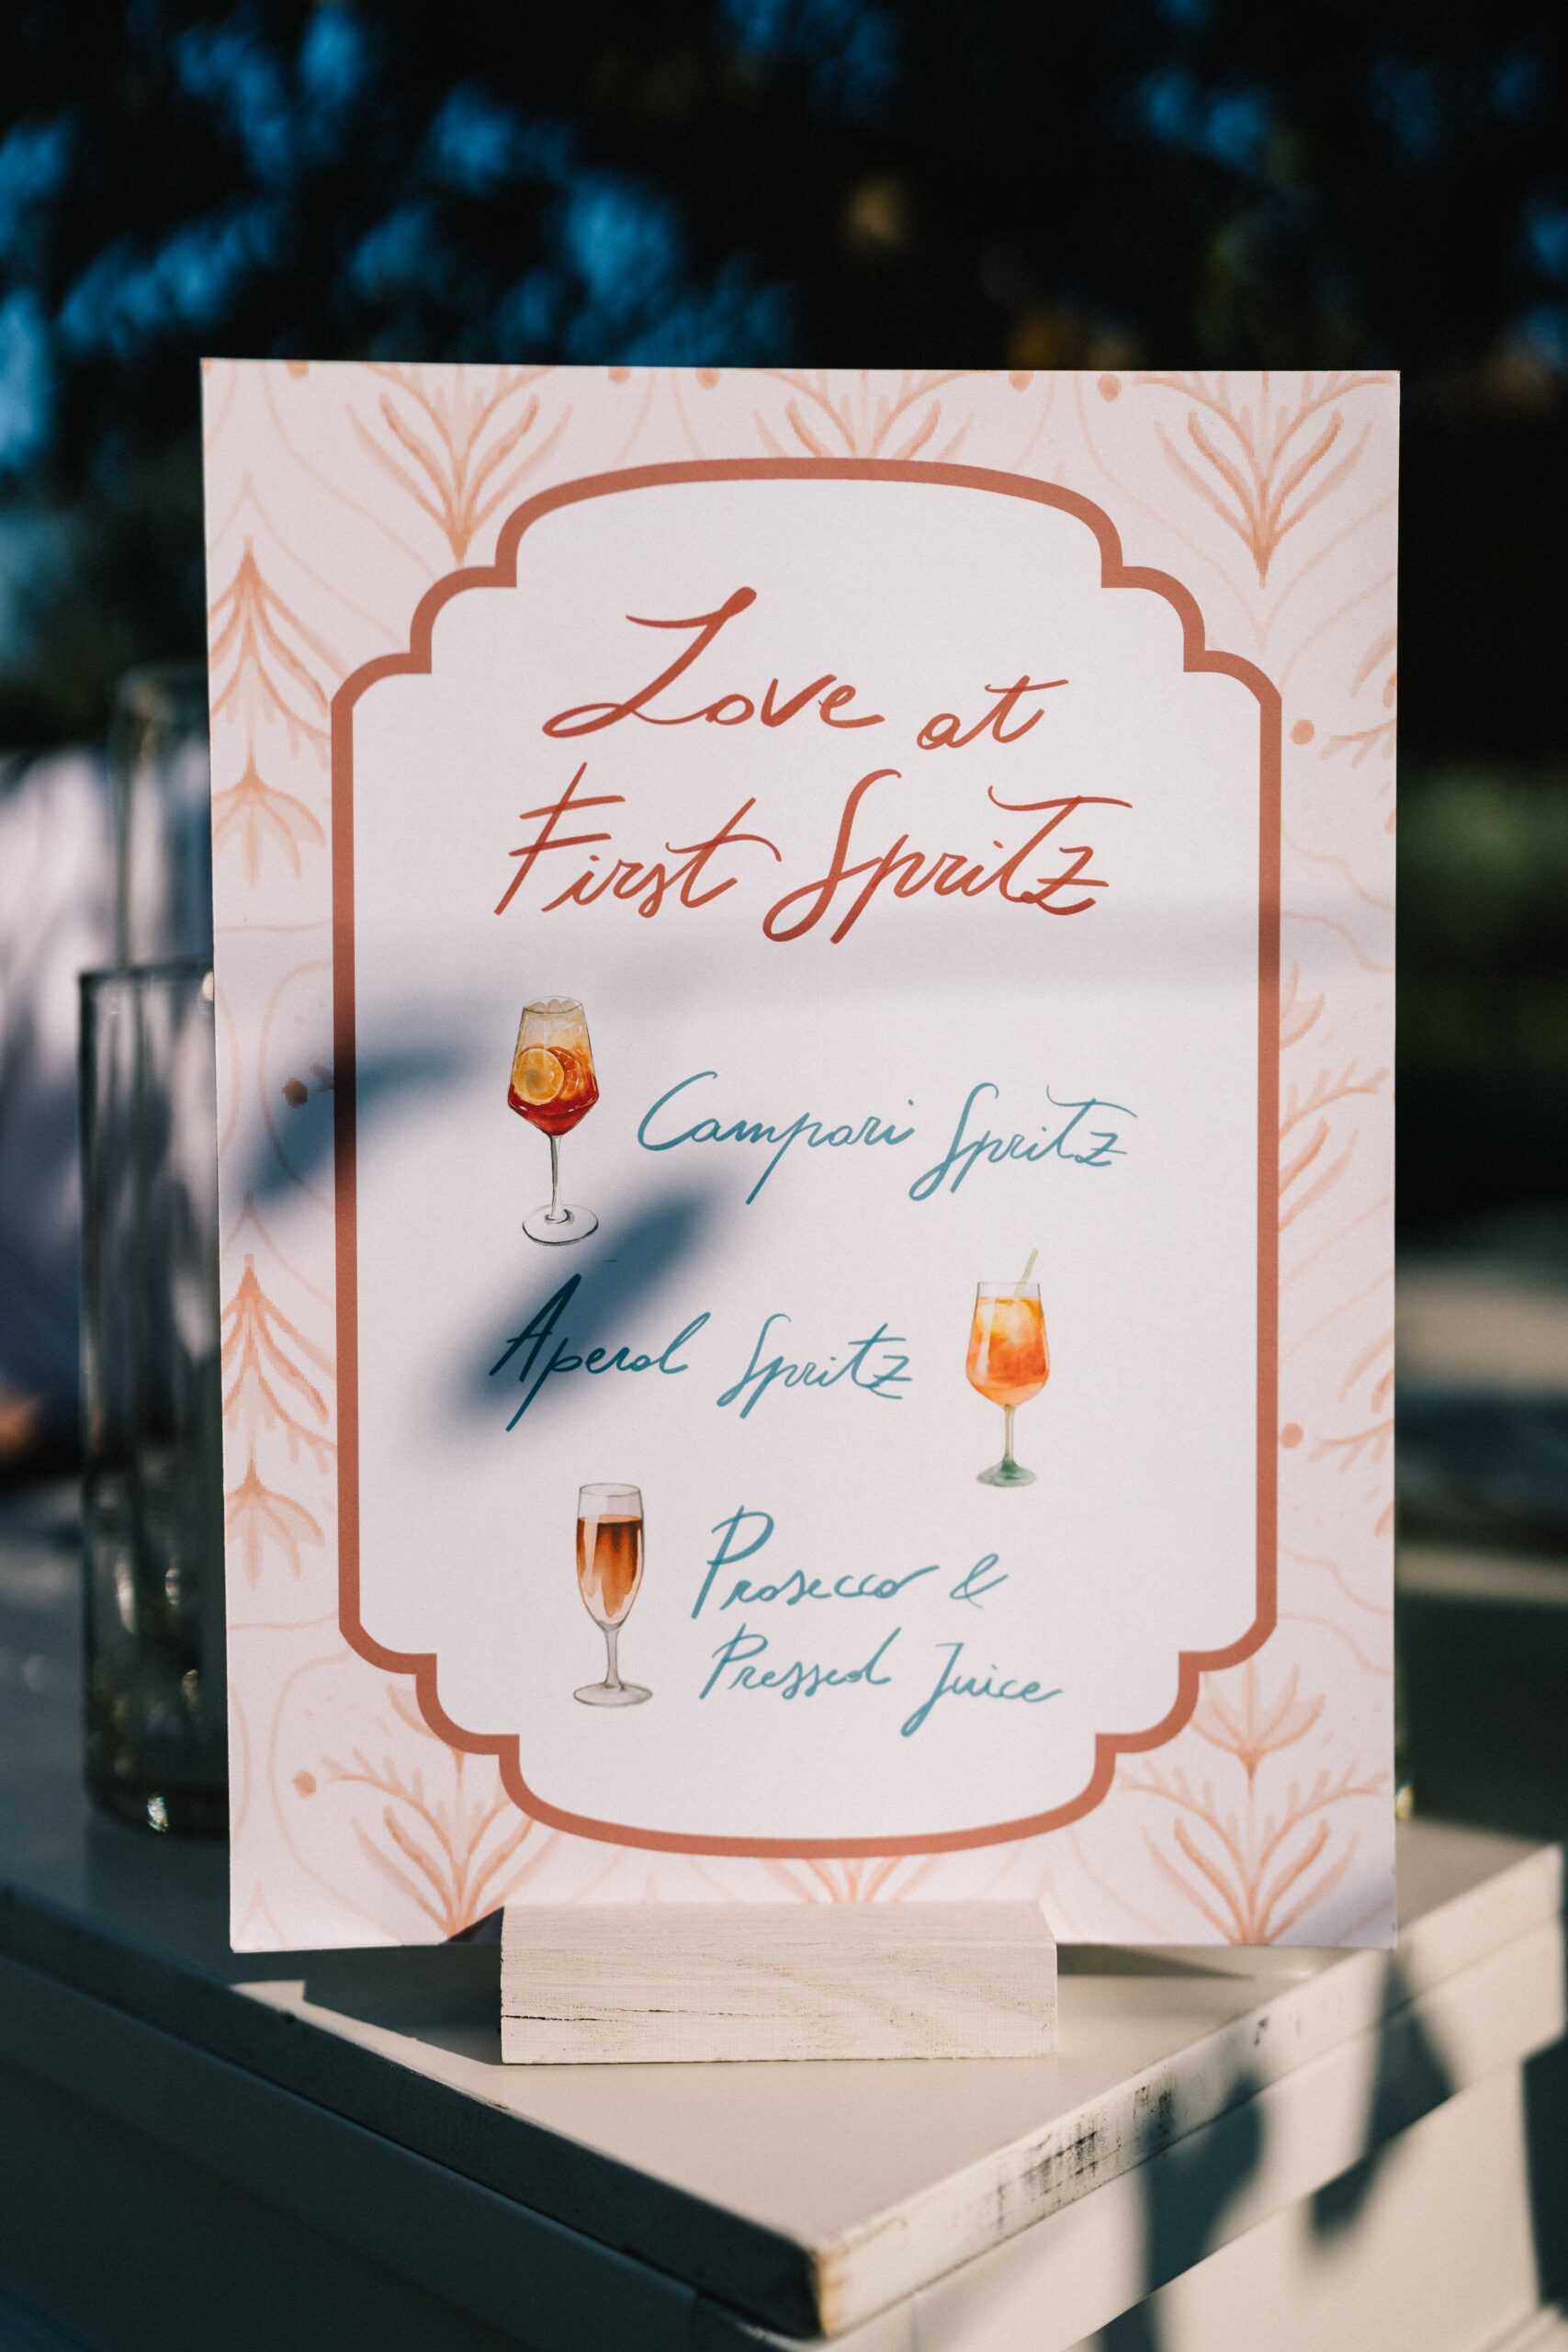 Love at
First Spritz
Campari Spritz
Aperol Spritz
Prosecco &
Pressed Juice